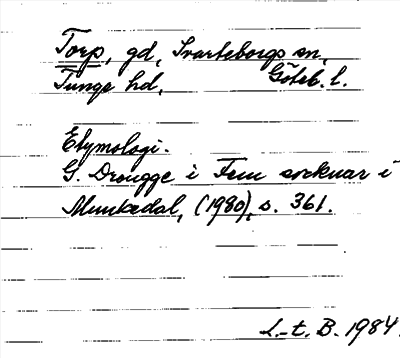 Torp, gd, Svarteborgs sn,
Tunge hd, Göteb. l.
Etymologi.
G. Drougge i Fem socknar i
Munkedal, (1980), s. 361.
L-t. B. 1984.